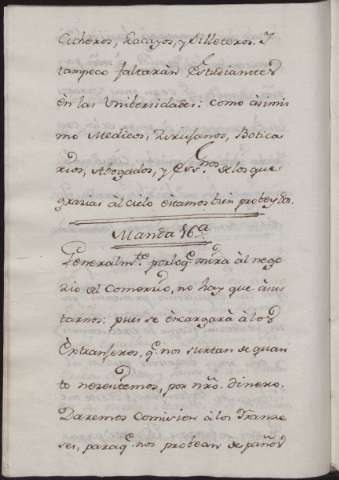 Cocheros, Lacayos, y Silleteros. I
tampoco faltarán Estudiantes
ên las Universidades: como àsimis
mo Medicos, Zirujanos, Botica
rios, Abogados, y Ess.nos de los que
gracias àl Cielo èstamos bien probeydos.
Manda 16.a
Generalm.te por loq.e mira àl nego
cio del Comercio, no hay que àsus
tarnos: pues se èncargarà à los
Èxtranjeros, q.e nos surtan de quan
to necesitemos, por nro. dinero.
Daremos Comision à los Franze
ses, paraq.e nos probean de paños